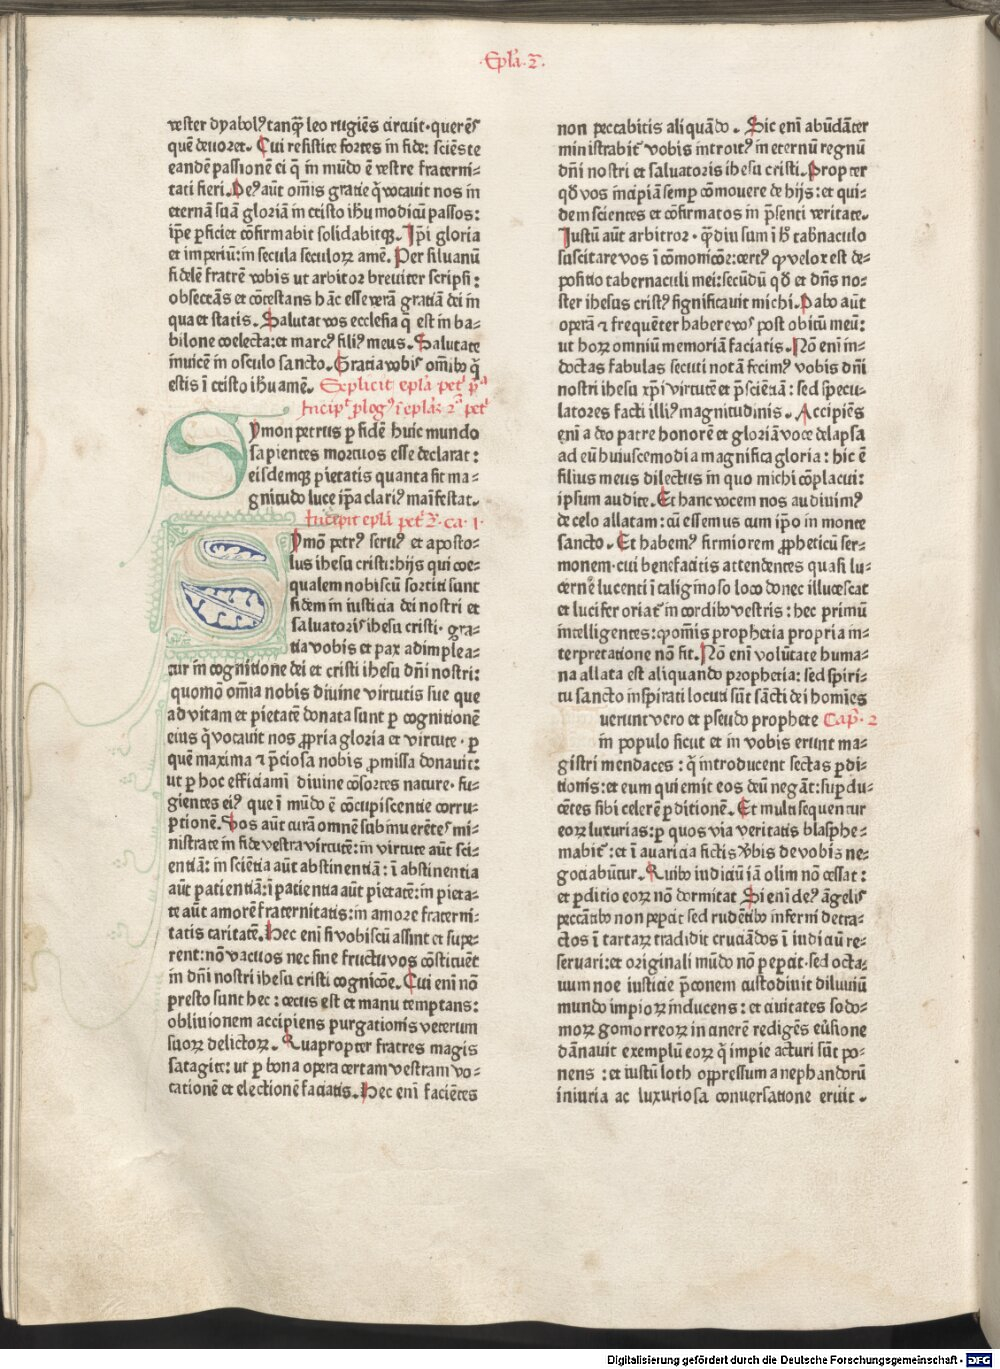 .Epl̄a.2̄.
vester dyabolꝰ tanq̄ʒ leo rugiēs circuit·querēs
quē deuoret. Cui resistite fortes in fide: sciēste
eandē passionē ei q̄ in mūdo ē vestre fraterni-
tati fieri. Deꝰ aūt om̄is gratie q̄ vocauit nos in
eternā suā gloriā in cristo ih̄u modicū passos:
ip̄e ꝑficiet cōfirmabit solidabitqʒ. Ip̄i gloria
et imperiū: in secula seculoꝝ amē. Per siluanū
fidelē fratrē vobis ut arbitor breuiter scripsi:
obsecrās et cōtestans hāc esse verā gratiā dei in
qua et statis. Salutat vos ecclesia q̄ est in ba-
bilone coelecta: et marcꝰ filiꝰ meus. Salutate
inuicē in osculo sancto. Gratia vobis om̄ibꝰ q̄
estis ī cristo ih̄u amē. Explicit epl̄a pet' p̄ª
Incip't ꝓlogꝰ ī epl̄aꝫ 2ª pet'
Symon petrus ꝑ fidē huic mundo
sapientes mortuos esse declarat:
eisdemqʒ pietatis quanta sit ma-
gnitudo luce ip̄a clariꝰ maīfestat.
Incepit epl̄a pet' 2ª ca·1·
Symō petrꝰ seruꝰ et aposto-
lus ihesu cristi: hijs qui coe-
qualem nobiscū sortiti sunt
fidem in iusticia dei nostri et
saluatoris ihesu cristi· gra-
tia vobis et pax adimplea-
tur in cognitione dei et cristi ihesu dn̄i nostri:
quomō om̄ia nobis diuine virtutis sue que
ad vitam et pietatē donata sunt ꝑ cognitionē
eius q̄ vocauit nos ꝓpria gloria et virtute· ꝑ
quē maxima ⁊ p̄ciosa nobis ꝓmissa donauit:
ut ꝑ hoc efficiamī diuine cōsortes nature· fu-
gientes eiꝰ que ī mūdo ē cōcupiscentie corru-
ptionē. Vos aūt curā omnē subinuerētes mi-
nistrate in fide vestra virtutē: in virtute aūt sci-
entiā: in sciētia aūt abstinentiā: ī abstinentia
aūt patientiā: ī patientia aūt pietatē: in pieta-
te aūt amorē fraternitatis: in amore fraterni-
tatis caritatē. Hec enī si vobiscū assint et supe-
rent: nō vacuos nec sine fructu vos cōstituēt
in dn̄i nostri ihesu cristi cognicōe. Cui enī nō
presto sunt hec: cecus est et manu temptans:
obliuionem accipiens purgationis veterum
suoꝝ delictoꝝ. Quapropter fratres magis
satagite: ut ꝑ bona opera certam vestram vo-
cationē et electionē faciatis. Hec enī faciētes
non peccabitis aliquādo. Sic enī abūdāter
ministrabit' vobis introitꝰ in eternū regnū
dn̄i nostri et saluatoris ihesu cristi. Propter
qd̄ vos incipiā semꝑ cōmouere de hijs: et qui-
dem scientes et cōfirmatos in p̄senti veritate.
Iustū aūt arbitror· q̄diu sum ī h̄ tab̄naculo
suscitare vos ī cōmonicōe: certꝰ ꝙ velox est de-
positio tabernaculi mei: secūdū qd̄ et dn̄s no-
ster ihesus cristꝰ significauit michi. Dabo aūt
operā ⁊ frequēter habere vos post obitū meū:
ut hoꝝ omniū memoriā faciatis. Nō enī in-
doctas fabulas secuti notā fecimꝰ vobis dn̄i
nostri ihesu xp̄i virtutē et p̄sciētiā: sed specu-
latores facti illiꝰ magnitudinis. Accipiēs
enī a deo patre honorē et gloriā voce delapsa
ad eū huiuscemodi a magnifica gloria: hic ē
filius meus dilectus in quo michi cōplacui:
ipsum audite. Et hanc vocem nos audiuimꝰ
de celo allatam: cū essemus cum ip̄o in monte
sancto. Et habemꝰ firmiorem ꝓpheticū ser-
monem· cui benefacitis attendentes quasi lu-
cerne lucenti ī caliginoso loco donec illucescat
et lucifer oriat' in cordibꝰ vestris: hec primū
intelligentes: ꝙ om̄is prophetia propria in-
terpretatione nō fit. Nō enī volūtate huma-
na allata est aliquando prophetia: sed spiri-
tu sancto inspirati locuti sūt sācti dei homies
uerunt vero et pseudo prophete Cap̄· 2
in populo sicut et in vobis erunt ma-
gistri mendaces: q̄ introducent sectas ꝑdi-
tionis: et eum qui emit eos deū negāt: suꝑdu-
cētes sibi celerē ꝑditionē. Et multi sequentur
eoꝝ luxurias: ꝑ quos via veritatis blasphe-
mabit': et ī auaricia fictis v̄bis de vobis ne-
gociabūtur. Quibꝰ iudiciū iā olim nō cessat:
et ꝑditio eoꝝ nō dormitat. Si enī deꝰ āgelis
peccātibꝰ non peꝑcit sed rudētibꝰ inferni detra-
ctos ī tartaꝝ tradidit cruciādos ī iudiciū re-
seruari: et originali mūdo nō peꝑcit· sed octa-
uum noe iusticie p̄conem custodiuit diluuiū
mundo impioꝝ inducens: et ciuitates sodo-
moꝝ gomorreoꝝ in cinerē redigēs eū̓sione
dānauit exemplū eoꝝ q̄ impie acturi sūt po-
nens: et iustū loth oppressum a nephandorū
iniuria ac luxuriosa conuersatione eruit.
Digitalisierung gefördert durch die Deutsche Forschungsgemeinschaft - DFG